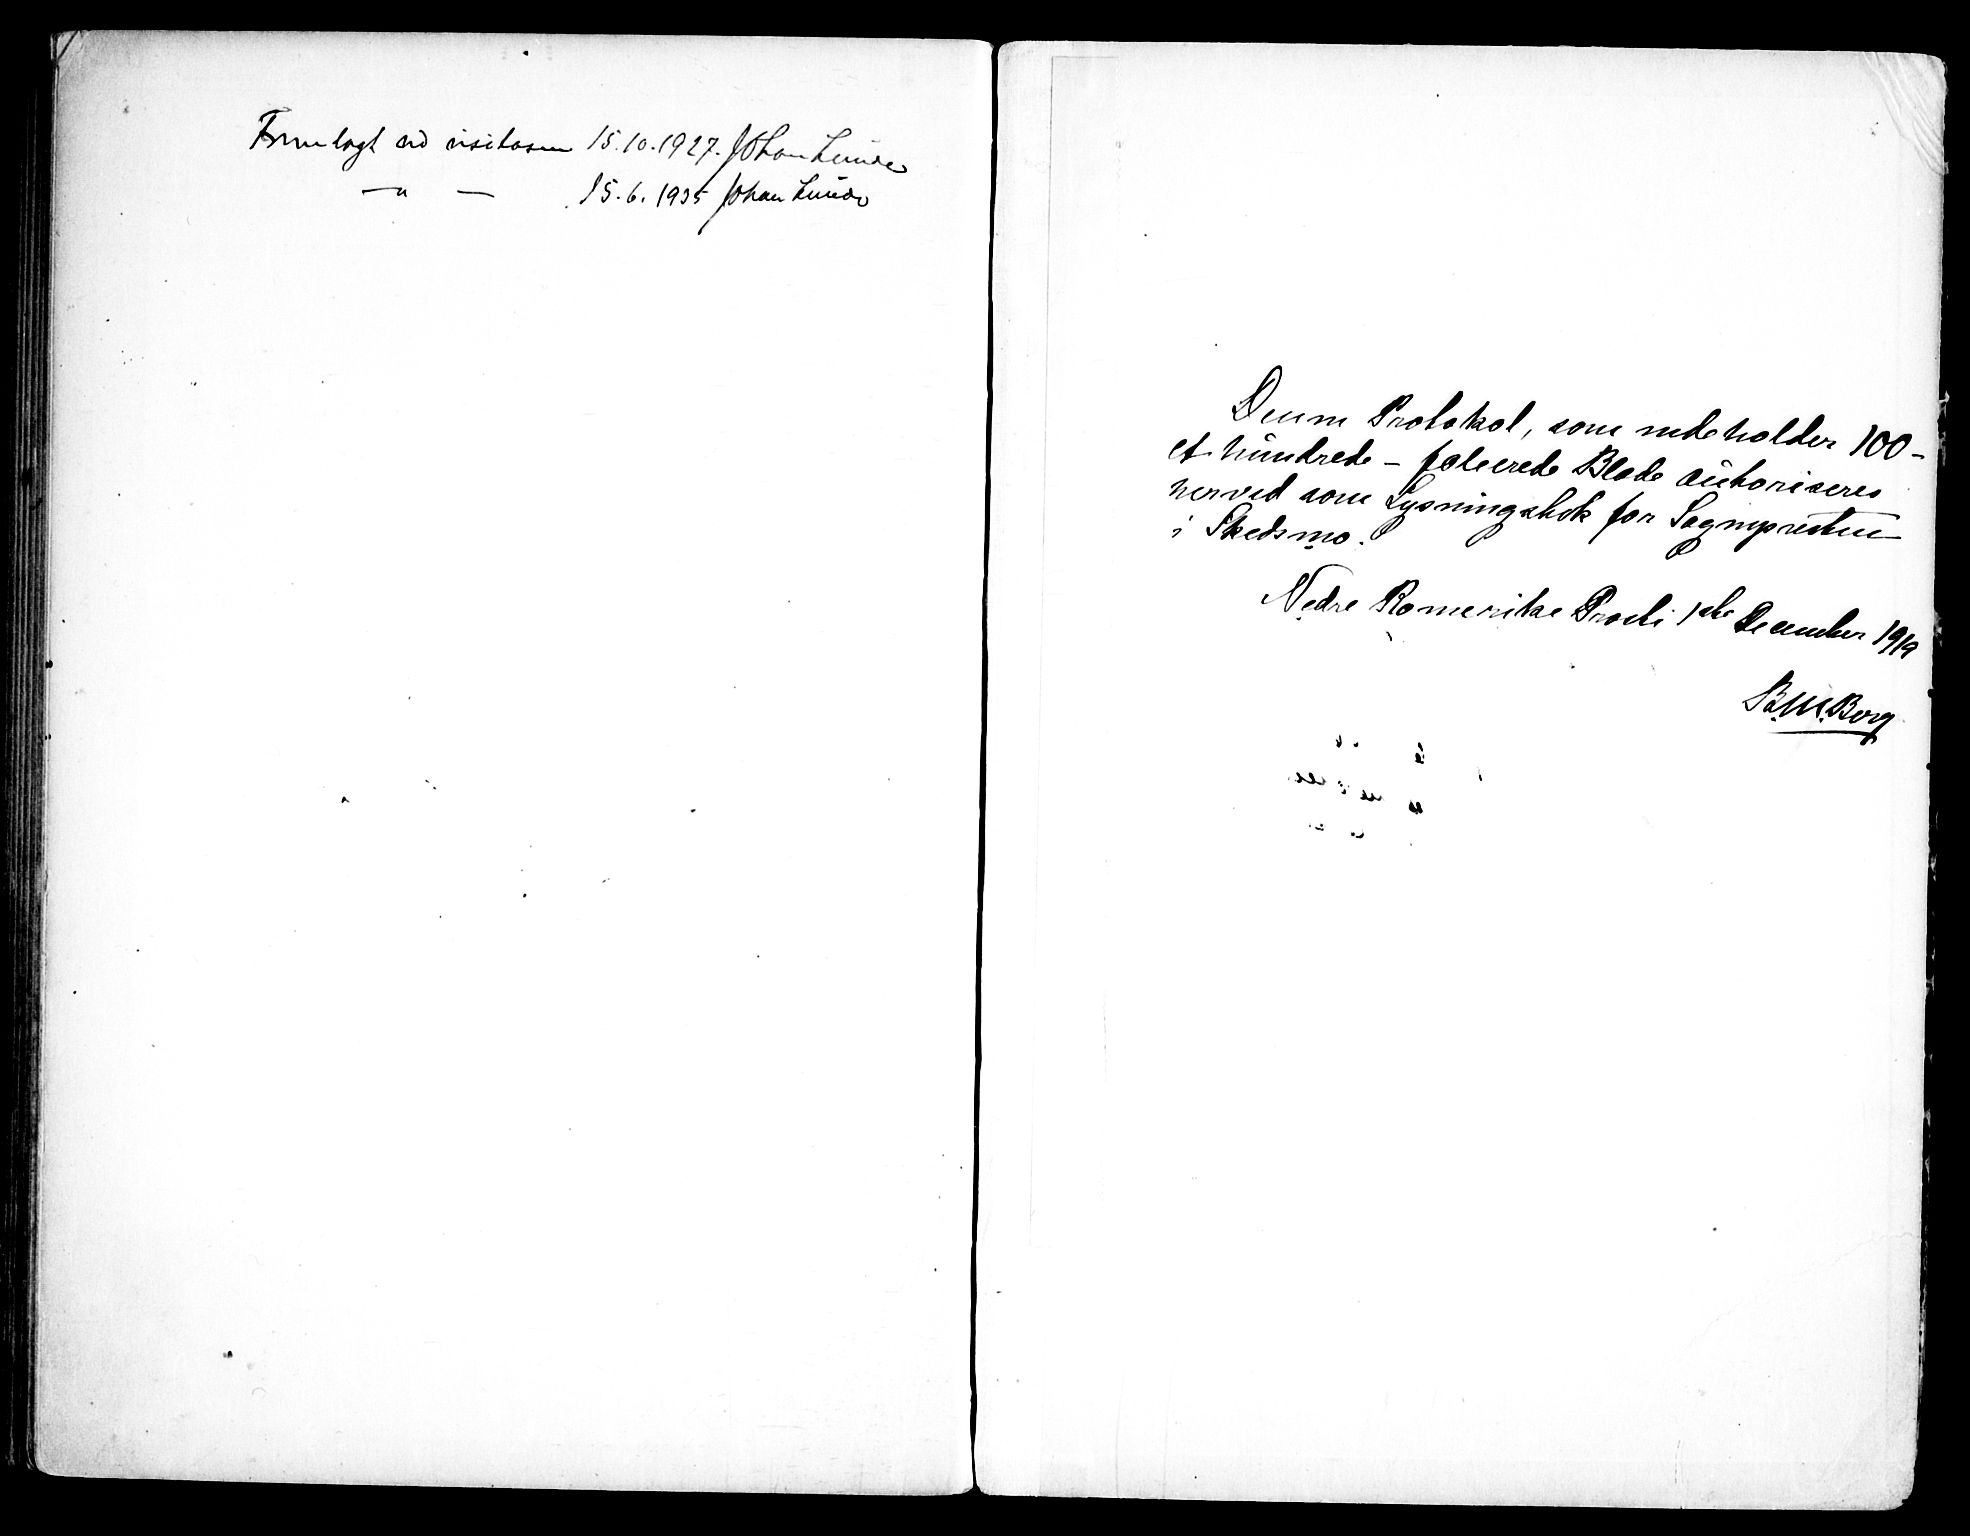 Fremlagt ved visitasen 15.10.1927. Johan Lunde
— " — 15.6.1935 Johan Lunde
Denne Protokol, som indeholder 100 -
et hundrede - folierede Blade autoriseres
herved som Lysningsbok for Sognepresten
i Skedsmo.
Nedre Romerike Prosti 1ste December 1919
B.M.Berg